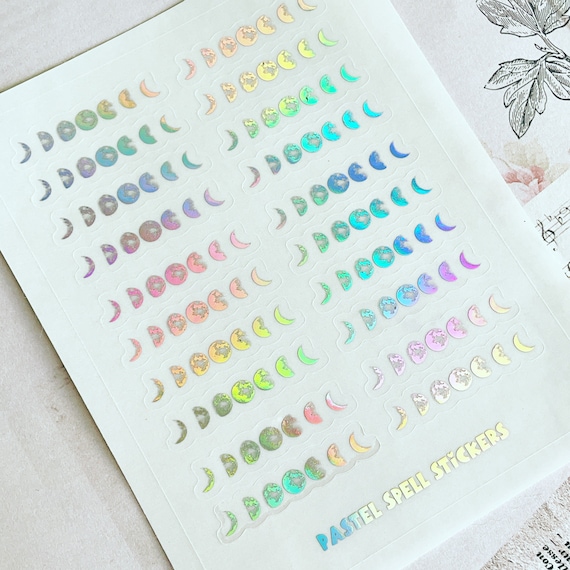 PASTEL SPELL STICKERS